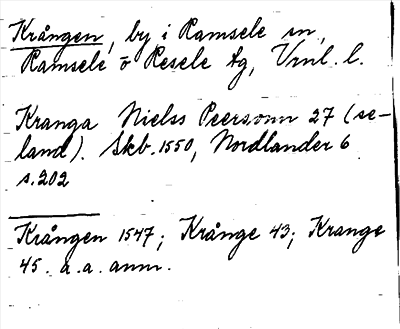 Krången, by i Ramsele sn,
Ramsele o Resele tg, Vrnl. l.
Kranga Nielss Peersonn 27 (se-
land). Skb. 1550, Nordlander 6
s. 202
Krången 1547; Krånge 43; Krange
45. a. a. anm.